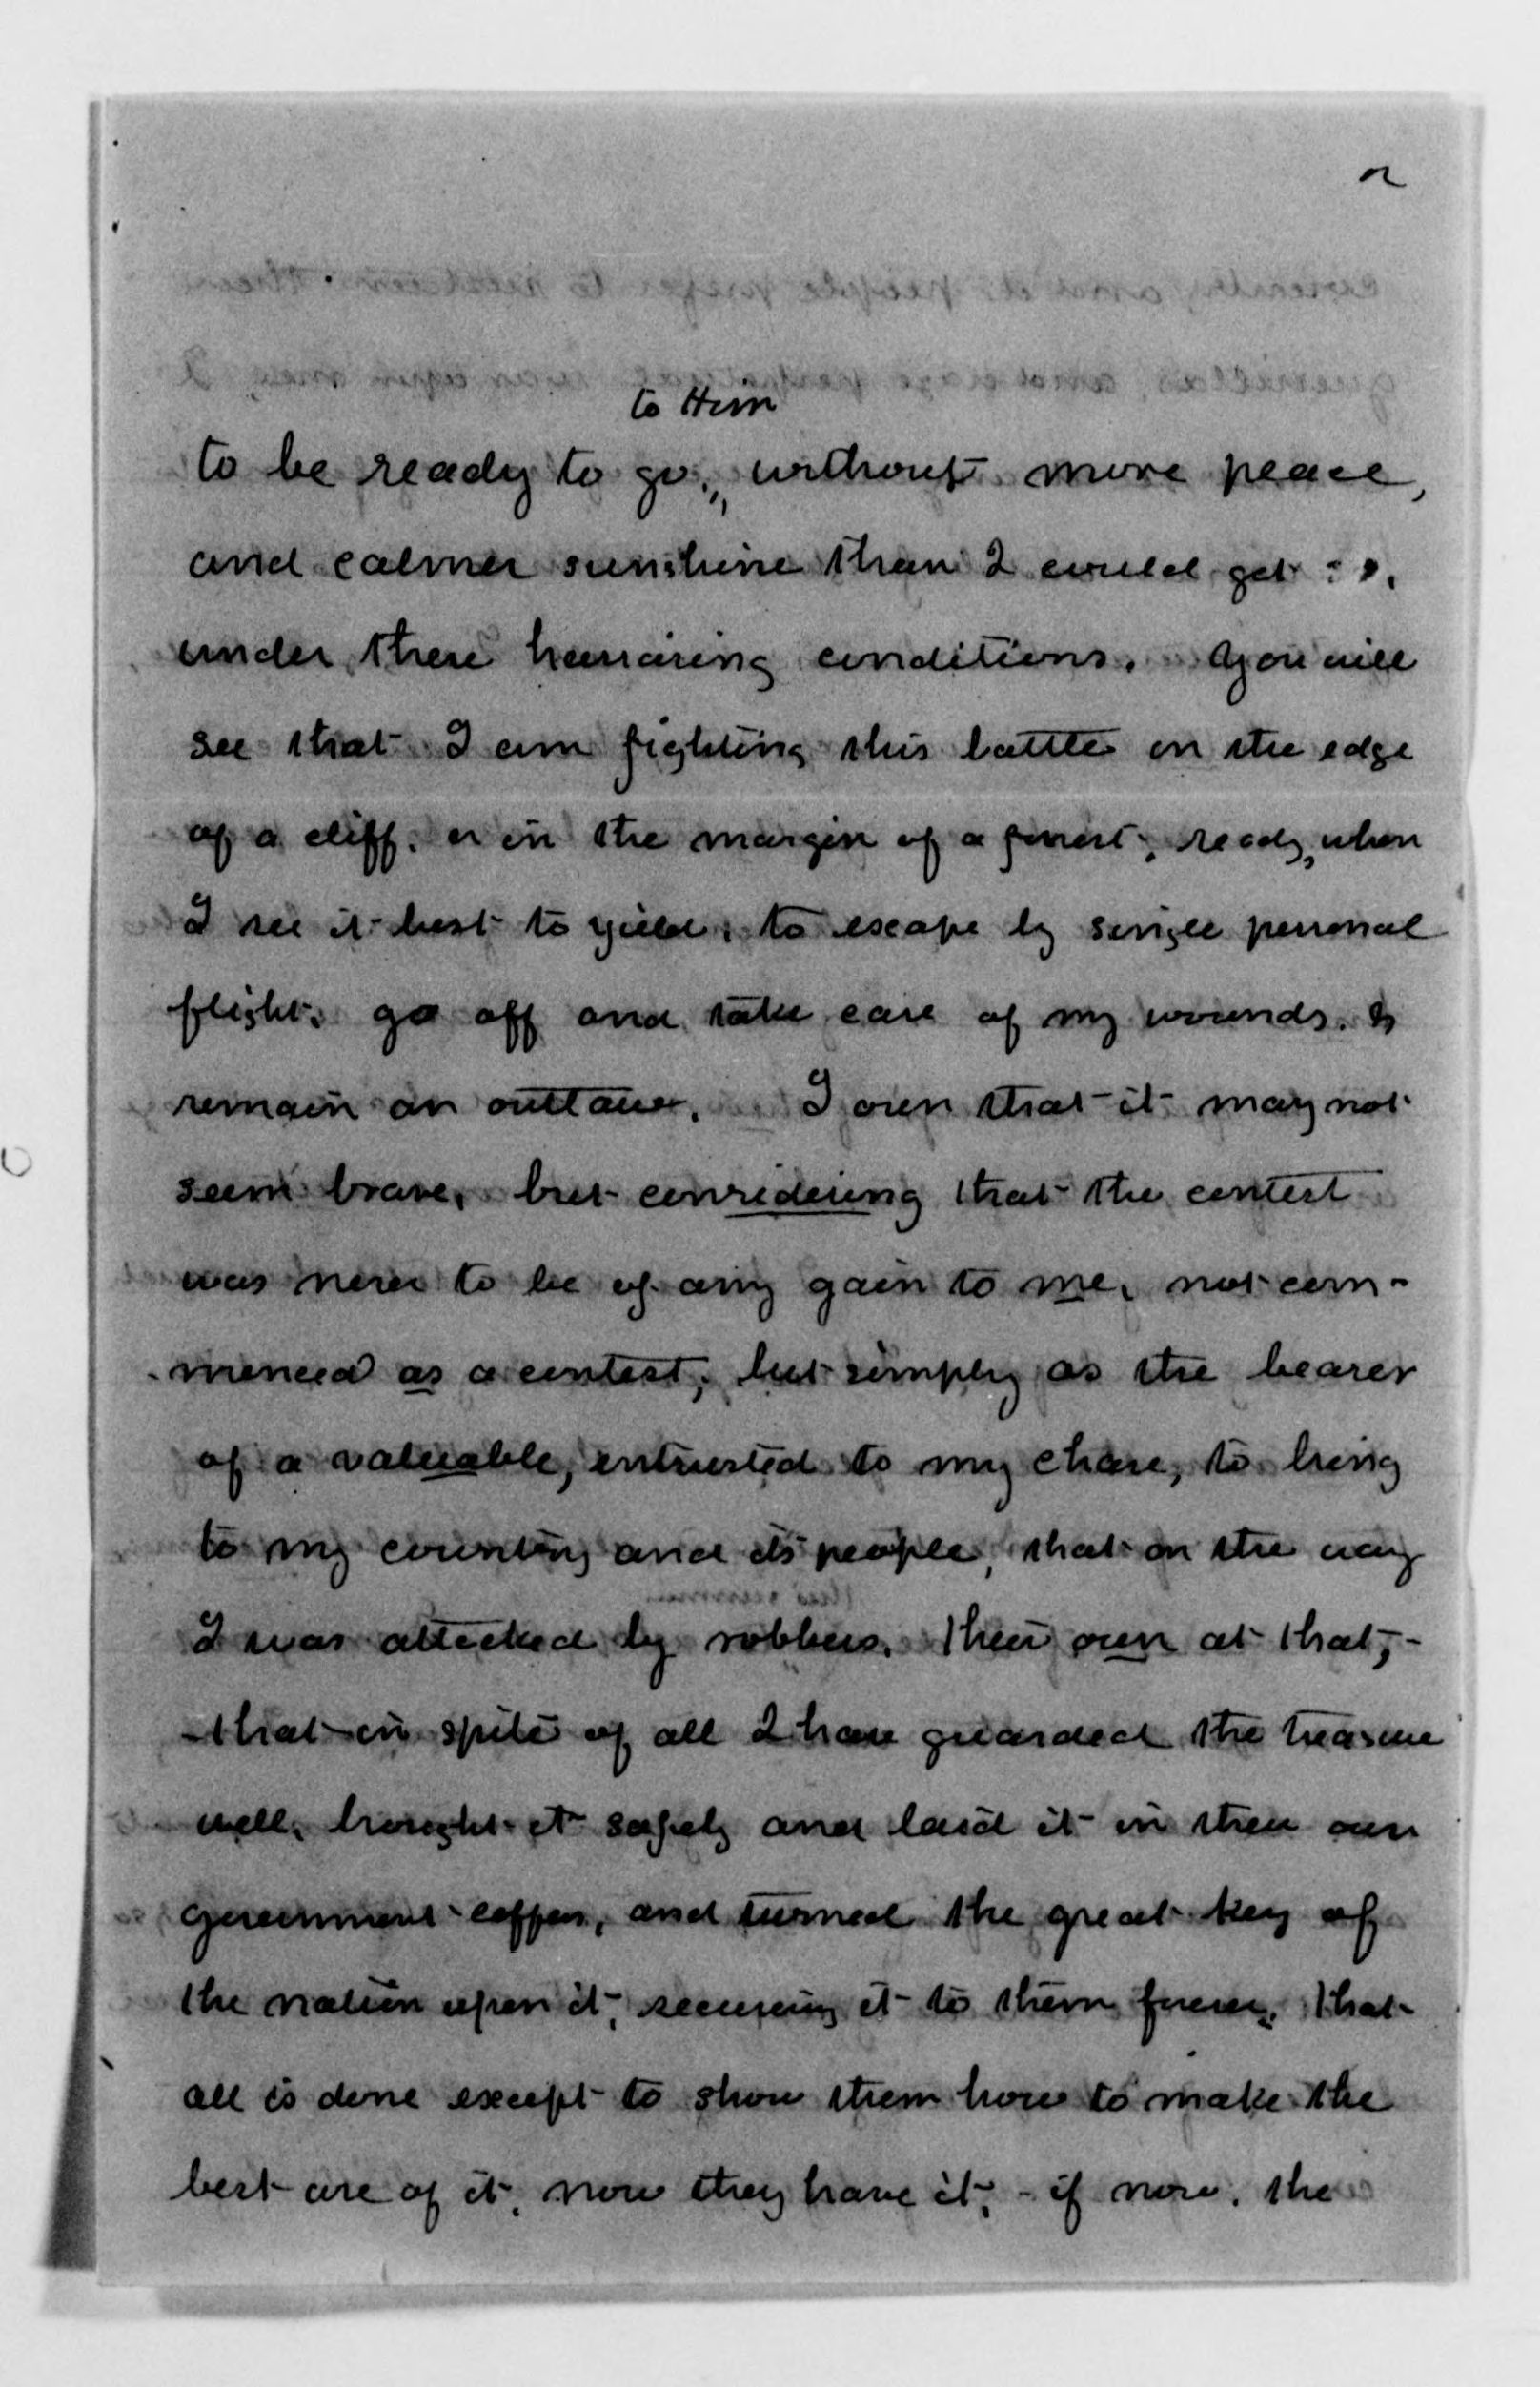 2
to Him
to be ready to go,, without more peace,
and calmer sunshine than I could get
under these harrasing conditions. You will
see that I am fighting this battle on the edge
of a cliff. or in the margin of a forest, ready, when
I see it best to yield, to escape by single personal
flight, go off and take care of my wounds. &
remain an outlaw. I own that it may not
seem brave, but considering that the contest
was never to be of any gain to me, not com-
menced as a contest, but simply as the bearer
of a valuable, entrusted to my chare, to bring
to my country and its people, that on the way
I was attacked by robbers. their own at that,-
-that in spite of all I have guarded the treasure
well, brought it safely and laid it in their own
government coffers, and turned the great key of
the nation upon it, securing it to them forever. that
all is done except to show them how to make the
best use of it, now they have it, - if now, the